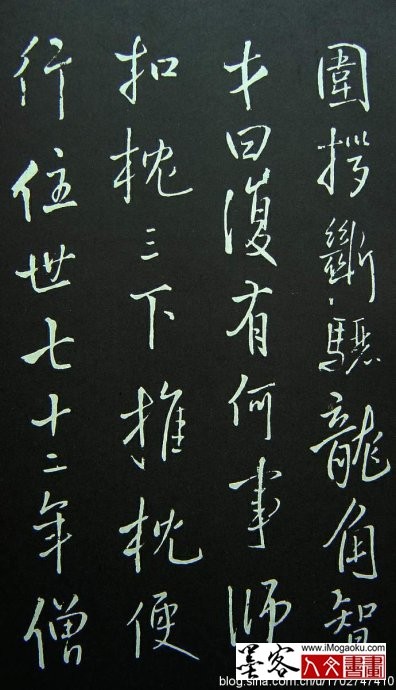 圍拶斷驪龍角智
才曰復有何事師
扣枕三下推枕便
行住世七十二年僧
墨客
www.iMogaoku.com
人文書畫
blog.sina.com.cn/u/1702747410